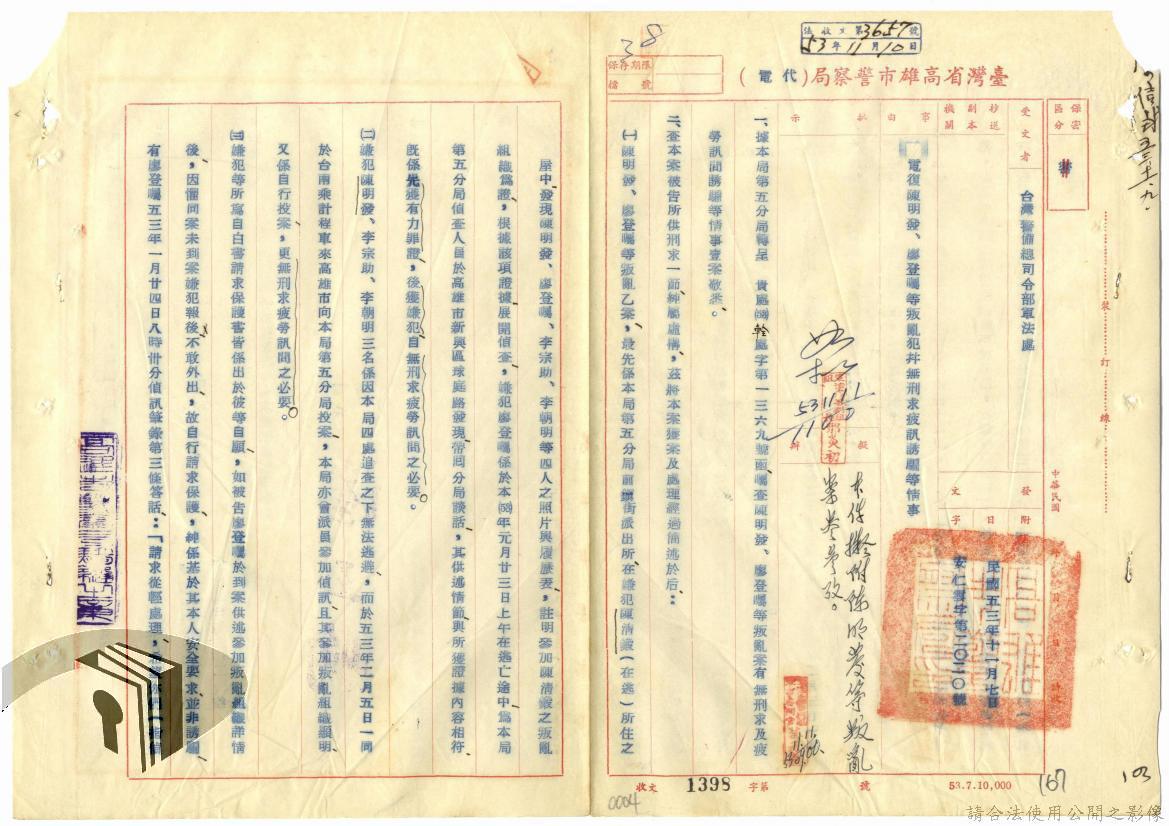 法收文第3657號
53年11月10日
38
保存期限
檔號
臺灣省高雄市警察局(代電)
保密
區分
受文者
台灣警備總司令部軍法處
抄送
副本
機關
事由
電復陳明發、廖登囑等叛亂犯幷無刑求疲訊誘願等情事
批示
擬辦
發文
附
日
字
中華民國
民國五三年十一月七日
安仁霽字第二〇二一〇號
裝訂線
一、據本局第五分局轉呈 貴處(53)銓處字第一三六九號函,囑查陳明發、廖登囑等叛亂案有無刑求及疲
勞訊問誘騙等情事壹案敬悉。
二、查本案被告所供刑求一節純屬虛構,茲將本案獲案及處理經過簡述於后:
(一)陳明發、廖登囑等叛亂乙案,最先係本局第五分局前鎭街派出所在嫌犯陳清澱(在逃)所住之
本件擬附陳明發等叛亂
案卷參攷。
收文
1398
字第
號
53.7.10,000
167
103
0004
屋中,發現陳明發、廖登囑、李宗助、李朝明等四人之照片與履歷表,註明參加陳清澱之叛亂
組織爲證,根據該項證據展開偵查,嫌犯廖登囑係於本(53)年元月廿三日上午在逃亡途中爲本局
第五分局偵查人員於高雄市新興區球庭路發現帶同分局談話,其供述情節與所獲證據內容相符
旣係先獲有力罪證,後獲嫌犯,自無刑求疲勞訊問之必要。
(二)嫌犯陳明發、李宗助、李朝明三名係因本局四處追查之下無法逃避,而於五三年二月五日一同
於台南乘計程車來高雄市向本局第五分局投案,本局亦曾派員參加偵訊且其參加叛亂組織顯明
又係自行投案,更無刑求疲勞訊問之必要。
(三)嫌犯等所寫自白書請求保護書皆係出於彼等自願,如被告廖登囑於到案供述參加叛亂組織詳情
後,因懼同案未到案嫌犯報後不敢外出,故自行請求保護,純係基於其本人安全要求並非誘願
有廖登囑五三年一月廿四日八時卅分偵訊筆錄第三條答話:「請求從輕處理,
請合法使用公開之影像